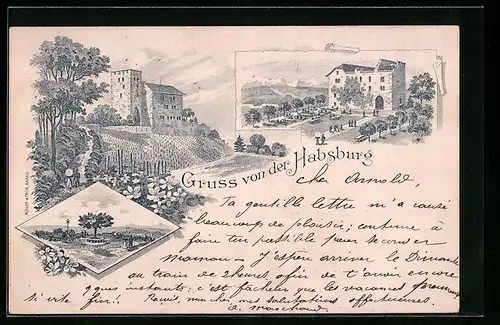 Gruss von der Habsburg
cher Arnold,
Ta gentille lettre m'a causé
beaucoup de plaisir; continue à
faire ton possible pour seconder
Maman — J'espère arriver le Dimanche
au train de 2 heures afin de t'avoir encore
qques instants; c'est fâcheux que les vacances
si vite fini! Reçois, mon cher, mes salutations affectueuses.